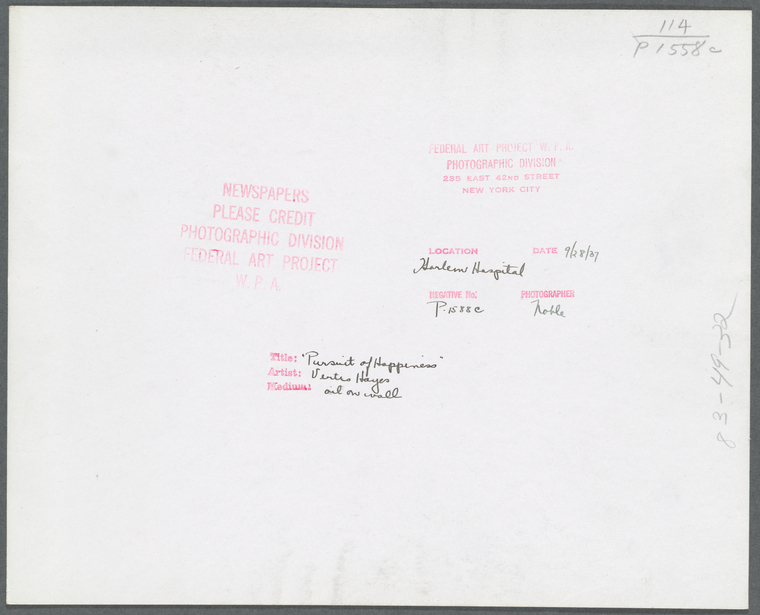 114
P 1558c
FEDERAL ART PROJECT W. P. A.
PHOTOGRAPHIC DIVISION
235 EAST 42ND STREET
NEW YORK CITY
NEWSPAPERS
PLEASE CREDIT
PHOTOGRAPHIC DIVISION
FEDERAL ART PROJECT
W. P. A.
LOCATION DATE 9/28/37
Harlem Hospital
NEGATIVE No: PHOTOGRAPHER
P-1588c Noble
Title: "Pursuit of Happiness"
Artist: Vertis Hayes
Medium: oil on wall
83-49-22